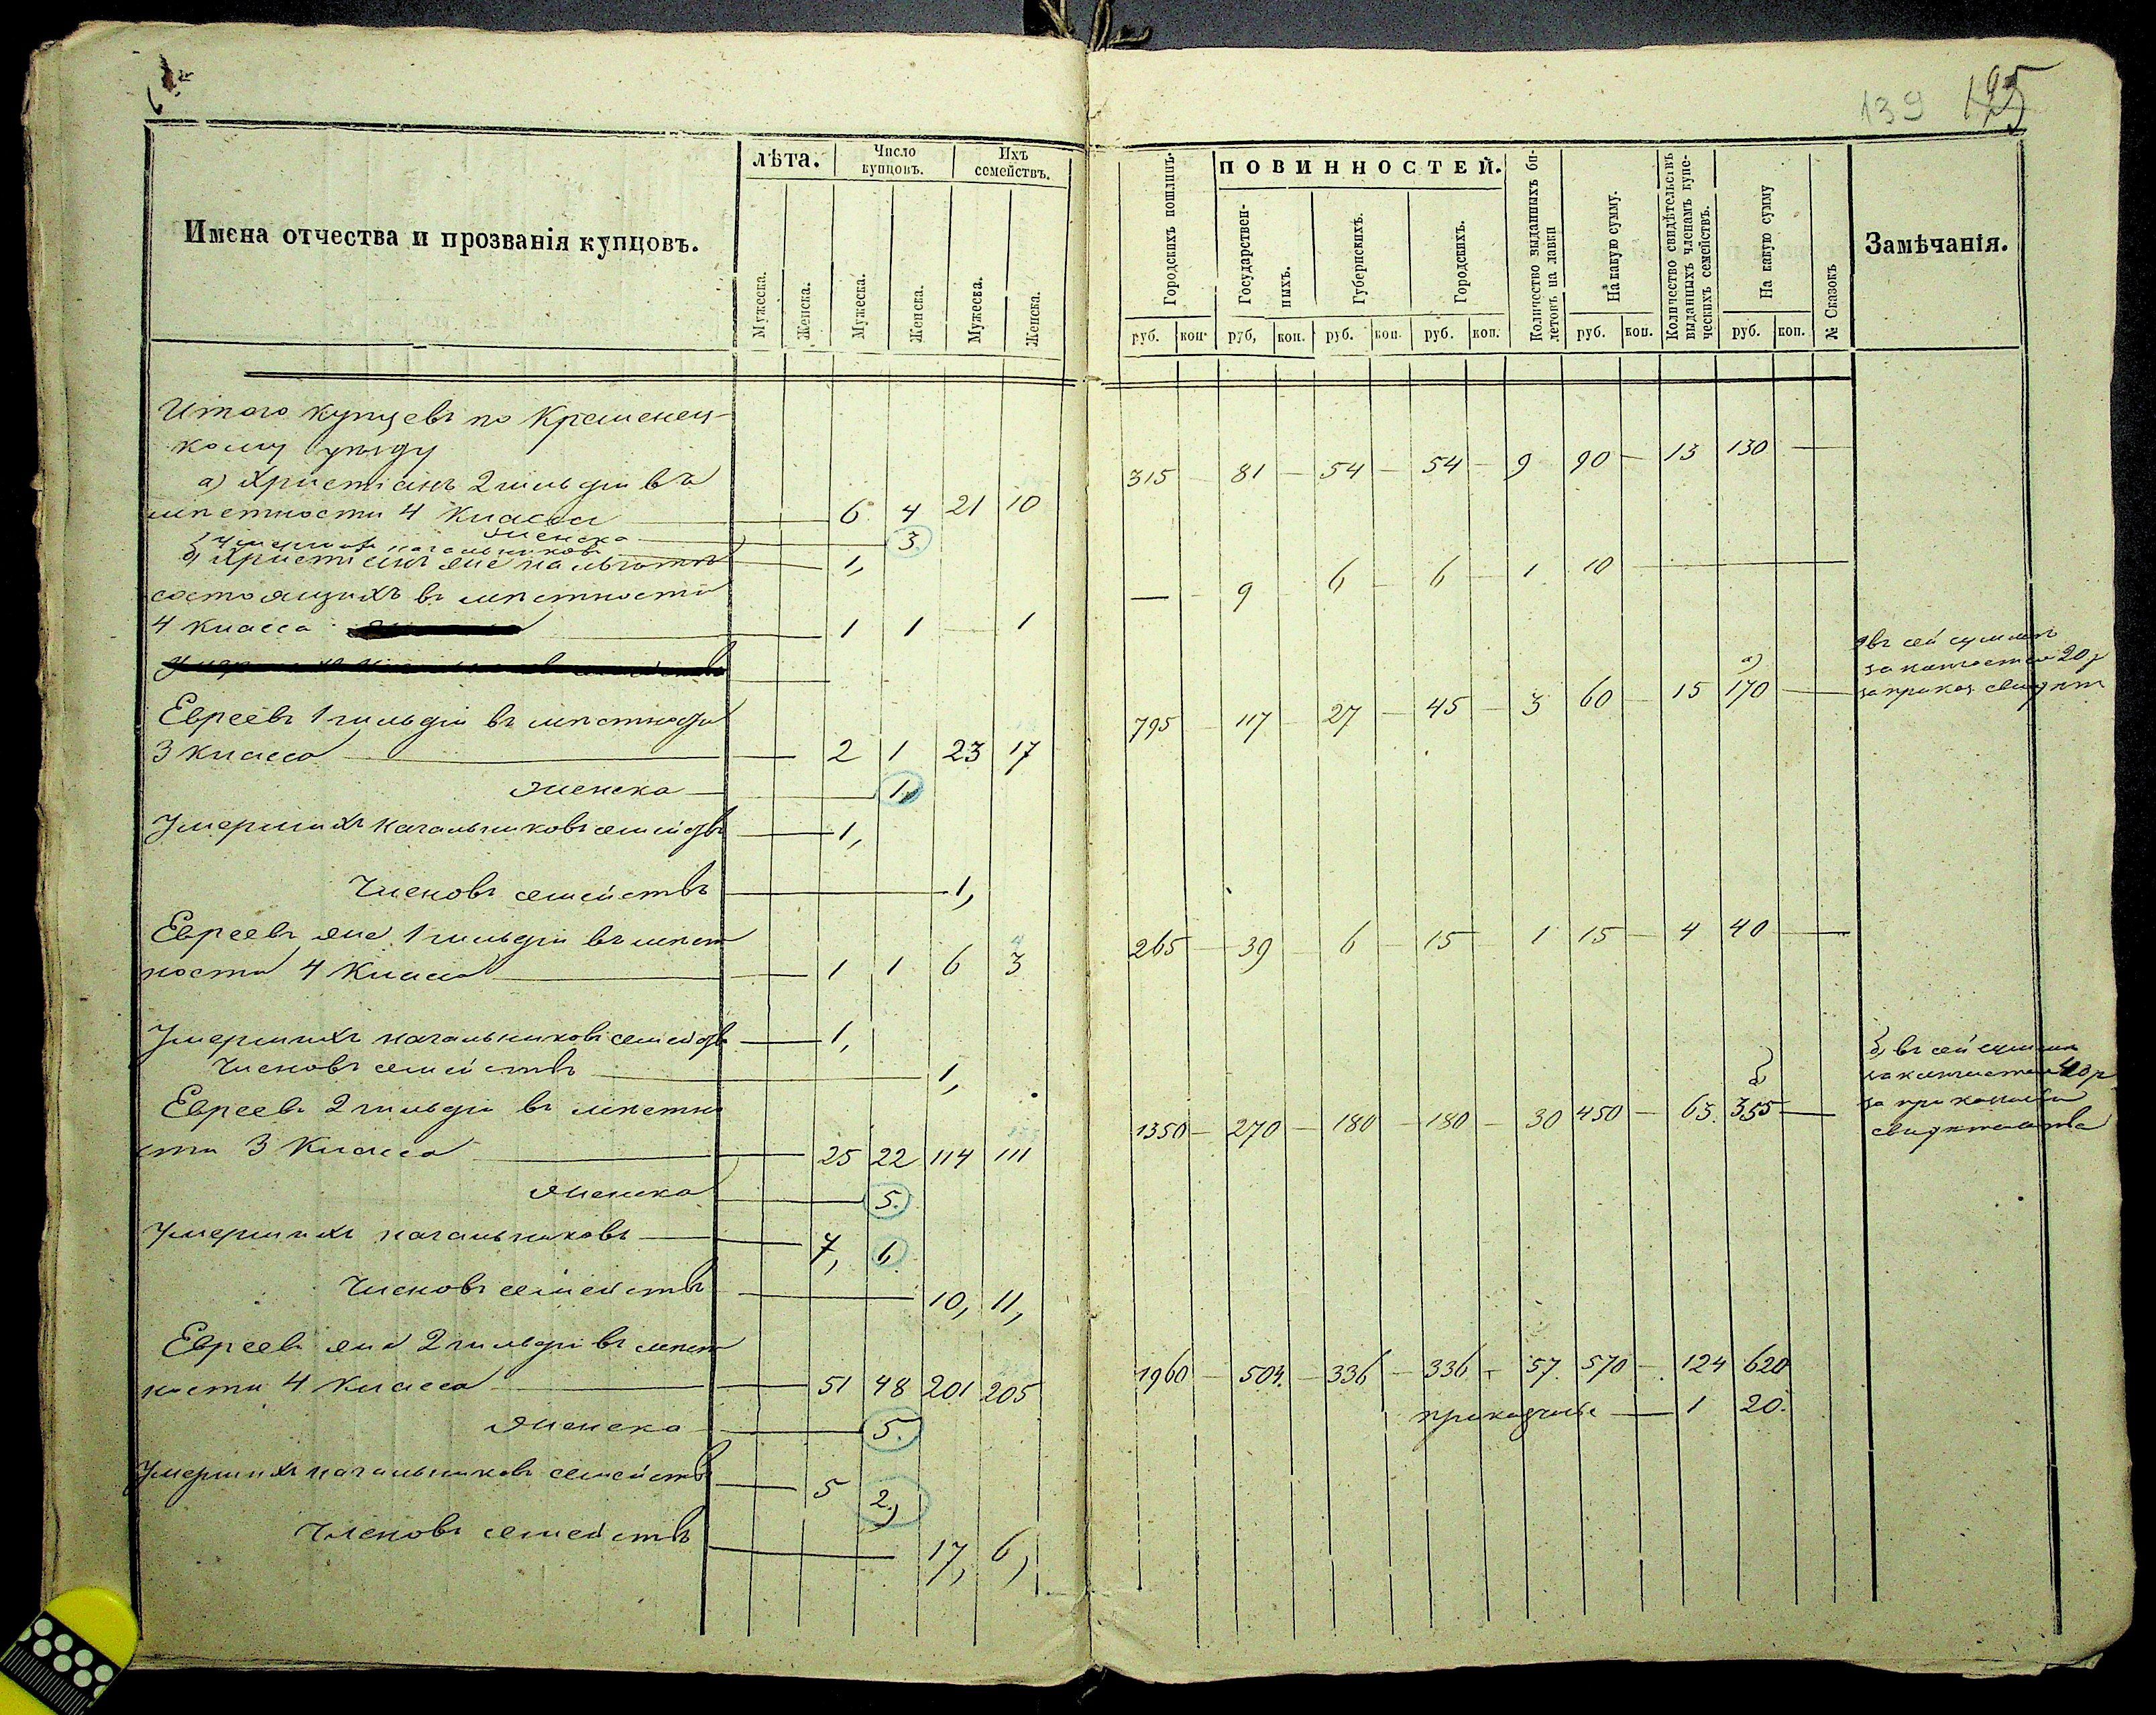 139 125
Имена отчества и прозванія купцовъ.
лѣта.
Число купцовъ.
Ихъ семействъ.
Мужеска.
Женска.
Мужеска.
Женска.
Мужеска.
Женска.
Городскихъ пошлинъ.
ПОВИННОСТЕЙ.
Государственныхъ.
Губернскихъ.
Городскихъ.
Количество выданныхъ билетовъ на лавки
На какую сумму.
Количество свидѣтельствъ выданныхъ членамъ купеческихъ семействъ.
На какую сумму
№ Сказокъ
Замѣчанія.
руб. коп. руб, коп. руб. коп. руб. коп. руб. коп. руб. коп.
Итого купцевъ по Кременец-
кому уѣзду
315 — 81 — 54 — 54 — 9 90 — 13 130 —
а) Христіанъ 2 гильдіи въ
мѣстности 4 класса — 6 4 21 10
женска — 3.
Умершихъ начальниковъ — 1,
б) Христіанъ же на льготѣ
состоящихъ въ мѣстности
— 9 — 6 — 6 — 1 10 —
4 класса — 1 1 — 1
Евреевъ 1 гильдіи въ мѣстности
795 — 117 — 27 — 45 — 3 60 — 15 170 —
а)
въ сей суммѣ
20 р
за приказ.
3 класса — 2 1 23 17
женска — 1,
Умершихъ начальниковъ семействъ — 1,
Членовъ семействъ — 1,
Евреевъ же 1 гильдіи въ мѣст
265 — 39 — 6 — 15 — 1 15 — 4 40 —
4
ности 4 класса — 1 1 6 3
Умершихъ начальниковъ семействъ — 1,
Членовъ семействъ — 1,
Евреевъ 2 гильдіи въ мѣстно
1350 — 270 — 180 — 180 — 30 450 — 63. 355 —
б) въ сей суммѣ
40 р
за
свидѣтельства
сти 3 класса — 25 22 114 111
женска — 5.
Умершихъ начальниковъ — 7, 1,
Членовъ семействъ — 10, 11,
Евреевъ же 2 гильдіи въ мѣст
1960 — 504. — 336 — 336 — 57. 570 — 124 620
ности 4 класса — 51 48 201 205
прикащичье — 1 20.
женска — 5.
Умершихъ начальниковъ семействъ — 5 2,
Членовъ семействъ — 17, 6,